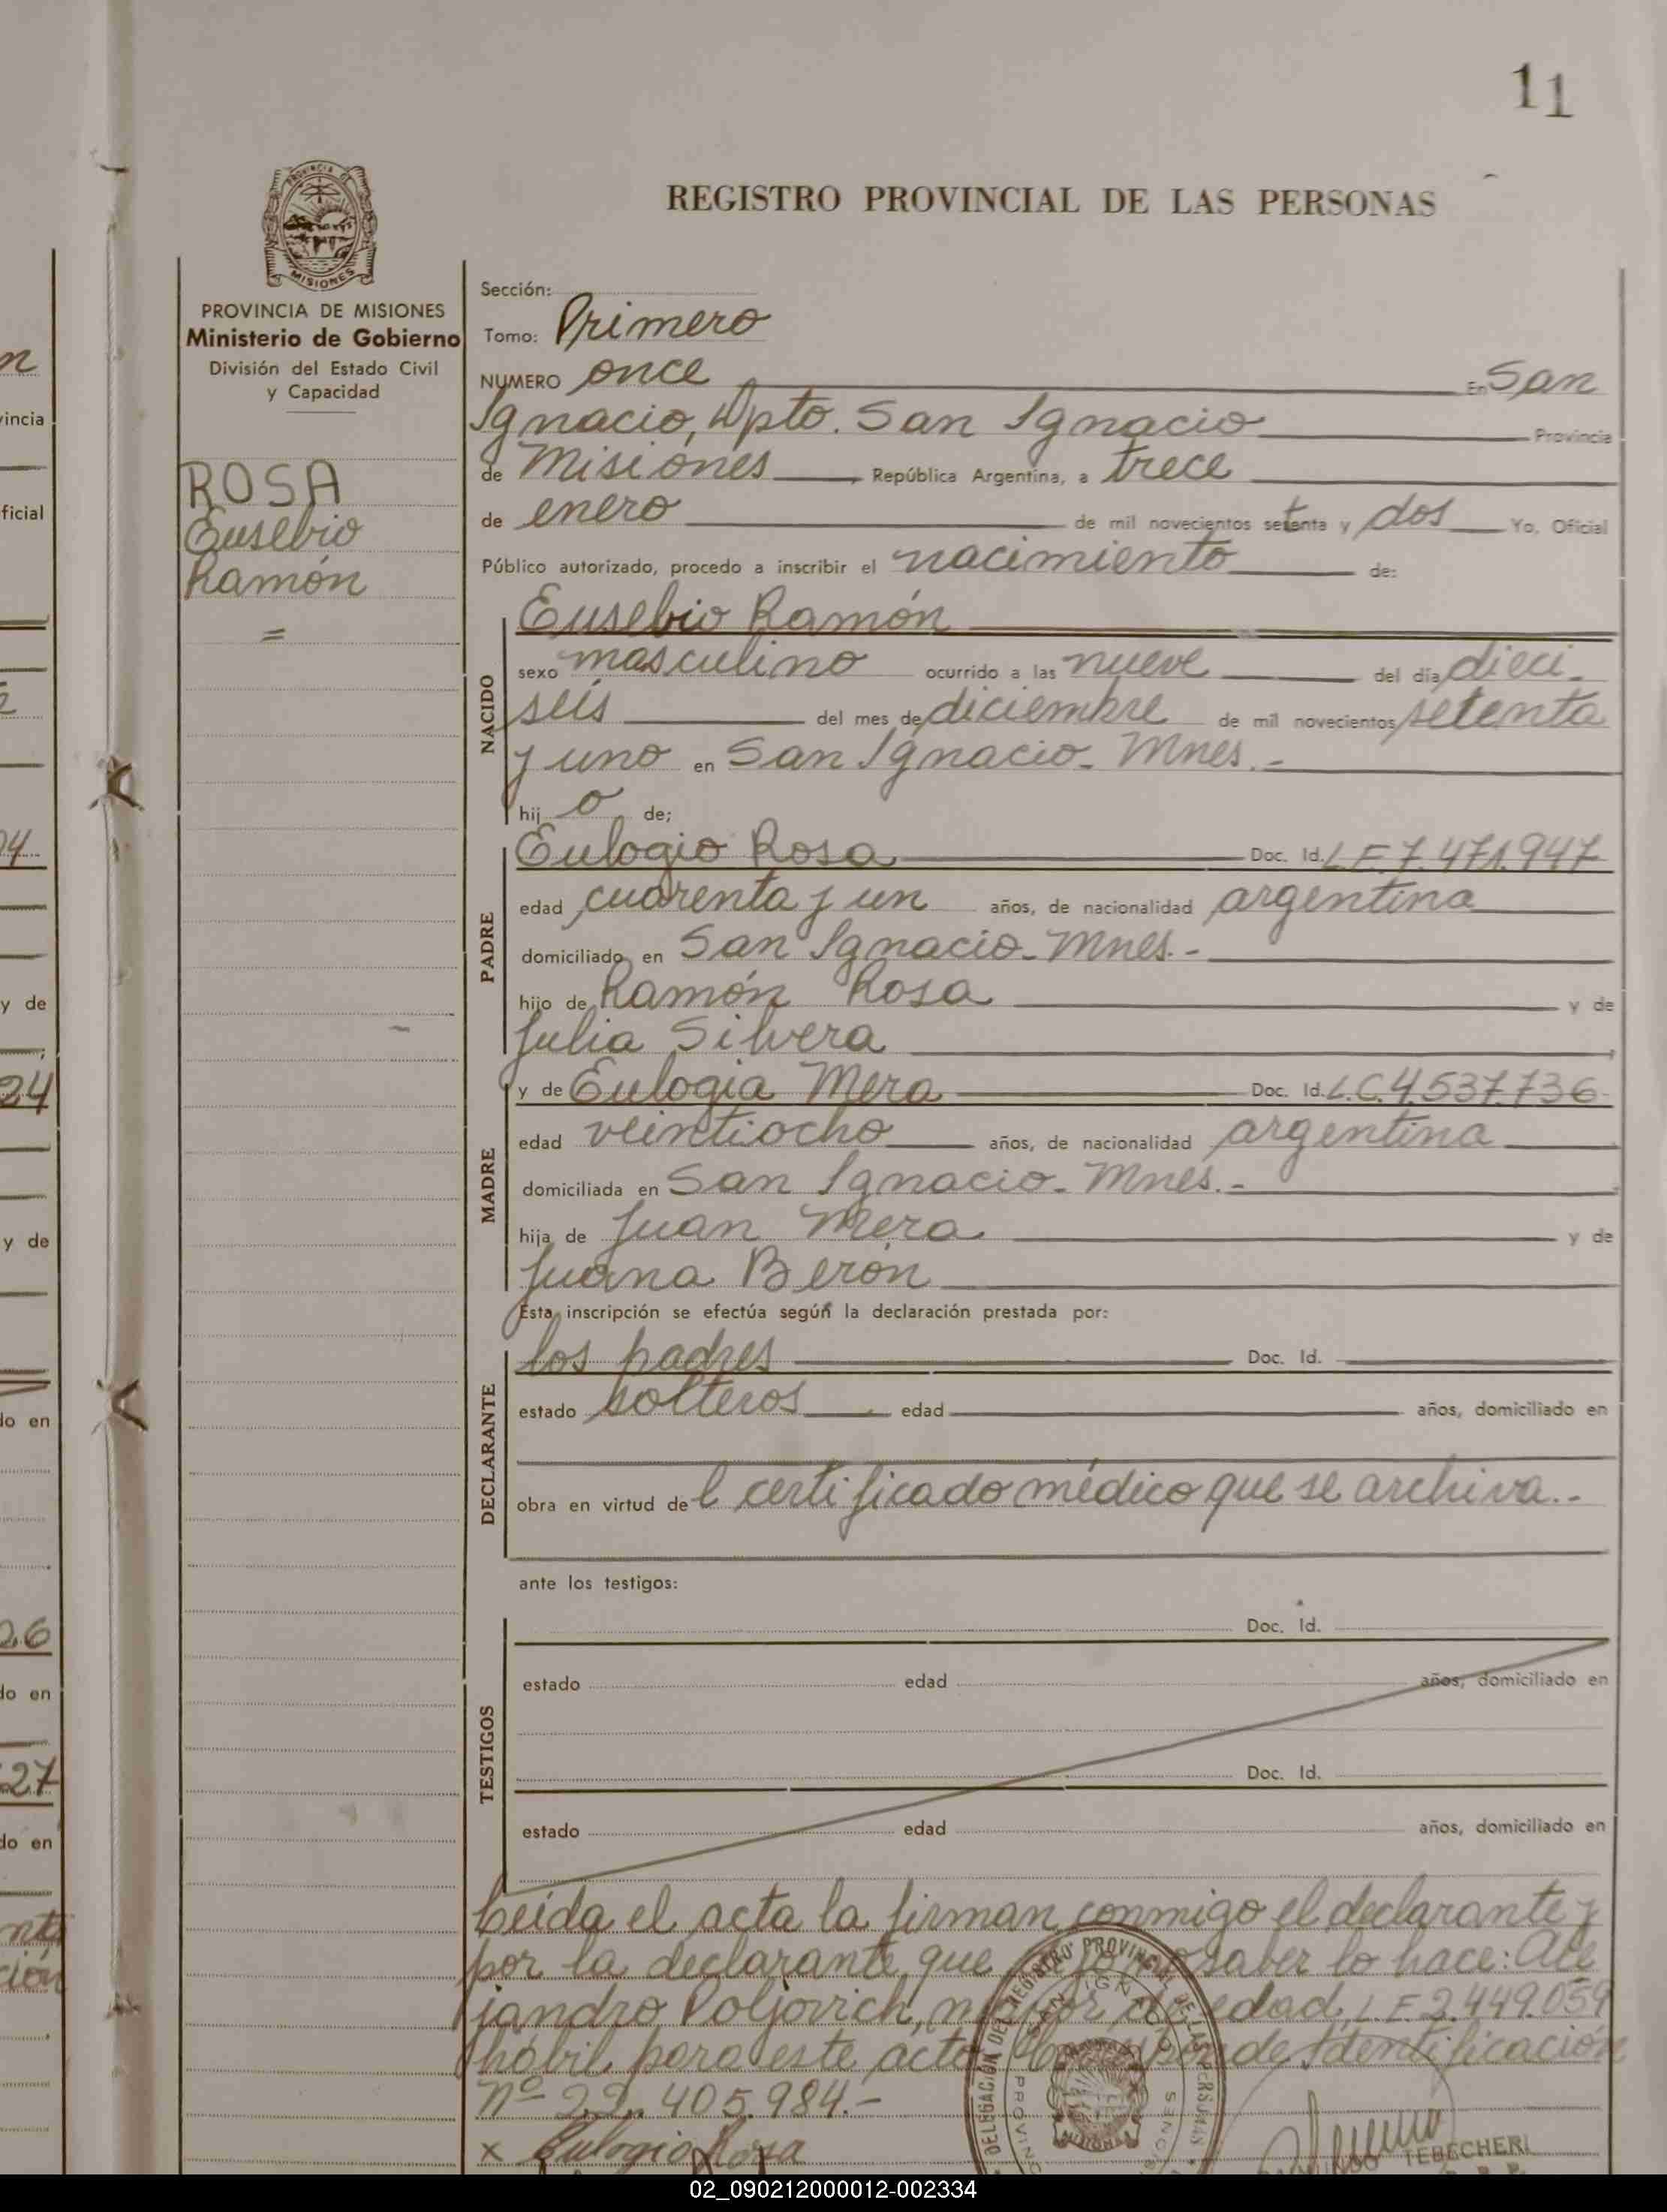 11
REGISTRO PROVINCIAL DE LAS PERSONAS
PROVINCIA DE
MISIONES
PROVINCIA DE MISIONES
Ministerio de Gobierno
División del Estado Civil
y Capacidad
ROSA
Eusebio
Ramón
=
Sección:
Tomo: Primero
NUMERO once En San
Ignacio, Dpto. San Ignacio Provincia
de Misiones República Argentina, a trece
de enero de mil novecientos setenta y dos Yo, Oficial
Público autorizado, procedo a inscribir el nacimiento de:
NACIDO
Eusebio Ramón
sexo masculino ocurrido a las nueve del día dieci-
seis del mes de diciembre de mil novecientos setenta
y uno en San Ignacio- Mnes.-
hij o de;
PADRE
Eulogio Rosa Doc. Id. L.E.7.471.947
edad cuarenta y un años, de nacionalidad argentina
domiciliado en San Ignacio- Mnes.-
hijo de Ramón Rosa y de
Julia Silvera
MADRE
y de Eulogia Mera Doc. Id. L.C.4.537.736
edad veintiocho años, de nacionalidad argentina
domiciliada en San Ignacio- Mnes.-
hija de Juan Mera y de
Juana Beron
Esta inscripción se efectúa según la declaración prestada por:
DECLARANTE
los padres Doc. Id.
estado solteros edad años, domiciliado en
obra en virtud de l certificado médico que se archiva.-
ante los testigos:
TESTIGOS
Doc. Id.
estado edad años, domiciliado en
Doc. Id.
estado edad años, domiciliado en
Leida el acta la firman conmigo el declarante y
por la declarante que saber lo hace: Ale
jandro Poljovich, mayor de edad, L.E.2.449.059
hábil para este acto de Identificación
nº 22.405.984.-
x Eulogio Rosa
DELEGACION DEL REGISTRO PROVINCIAL DE LAS PERSONAS
SAN IGNACIO
TEBECHERI
n
vincia
ficial
y de
24
y de
do en
26
do en
27
do en
02_090212000012-002334